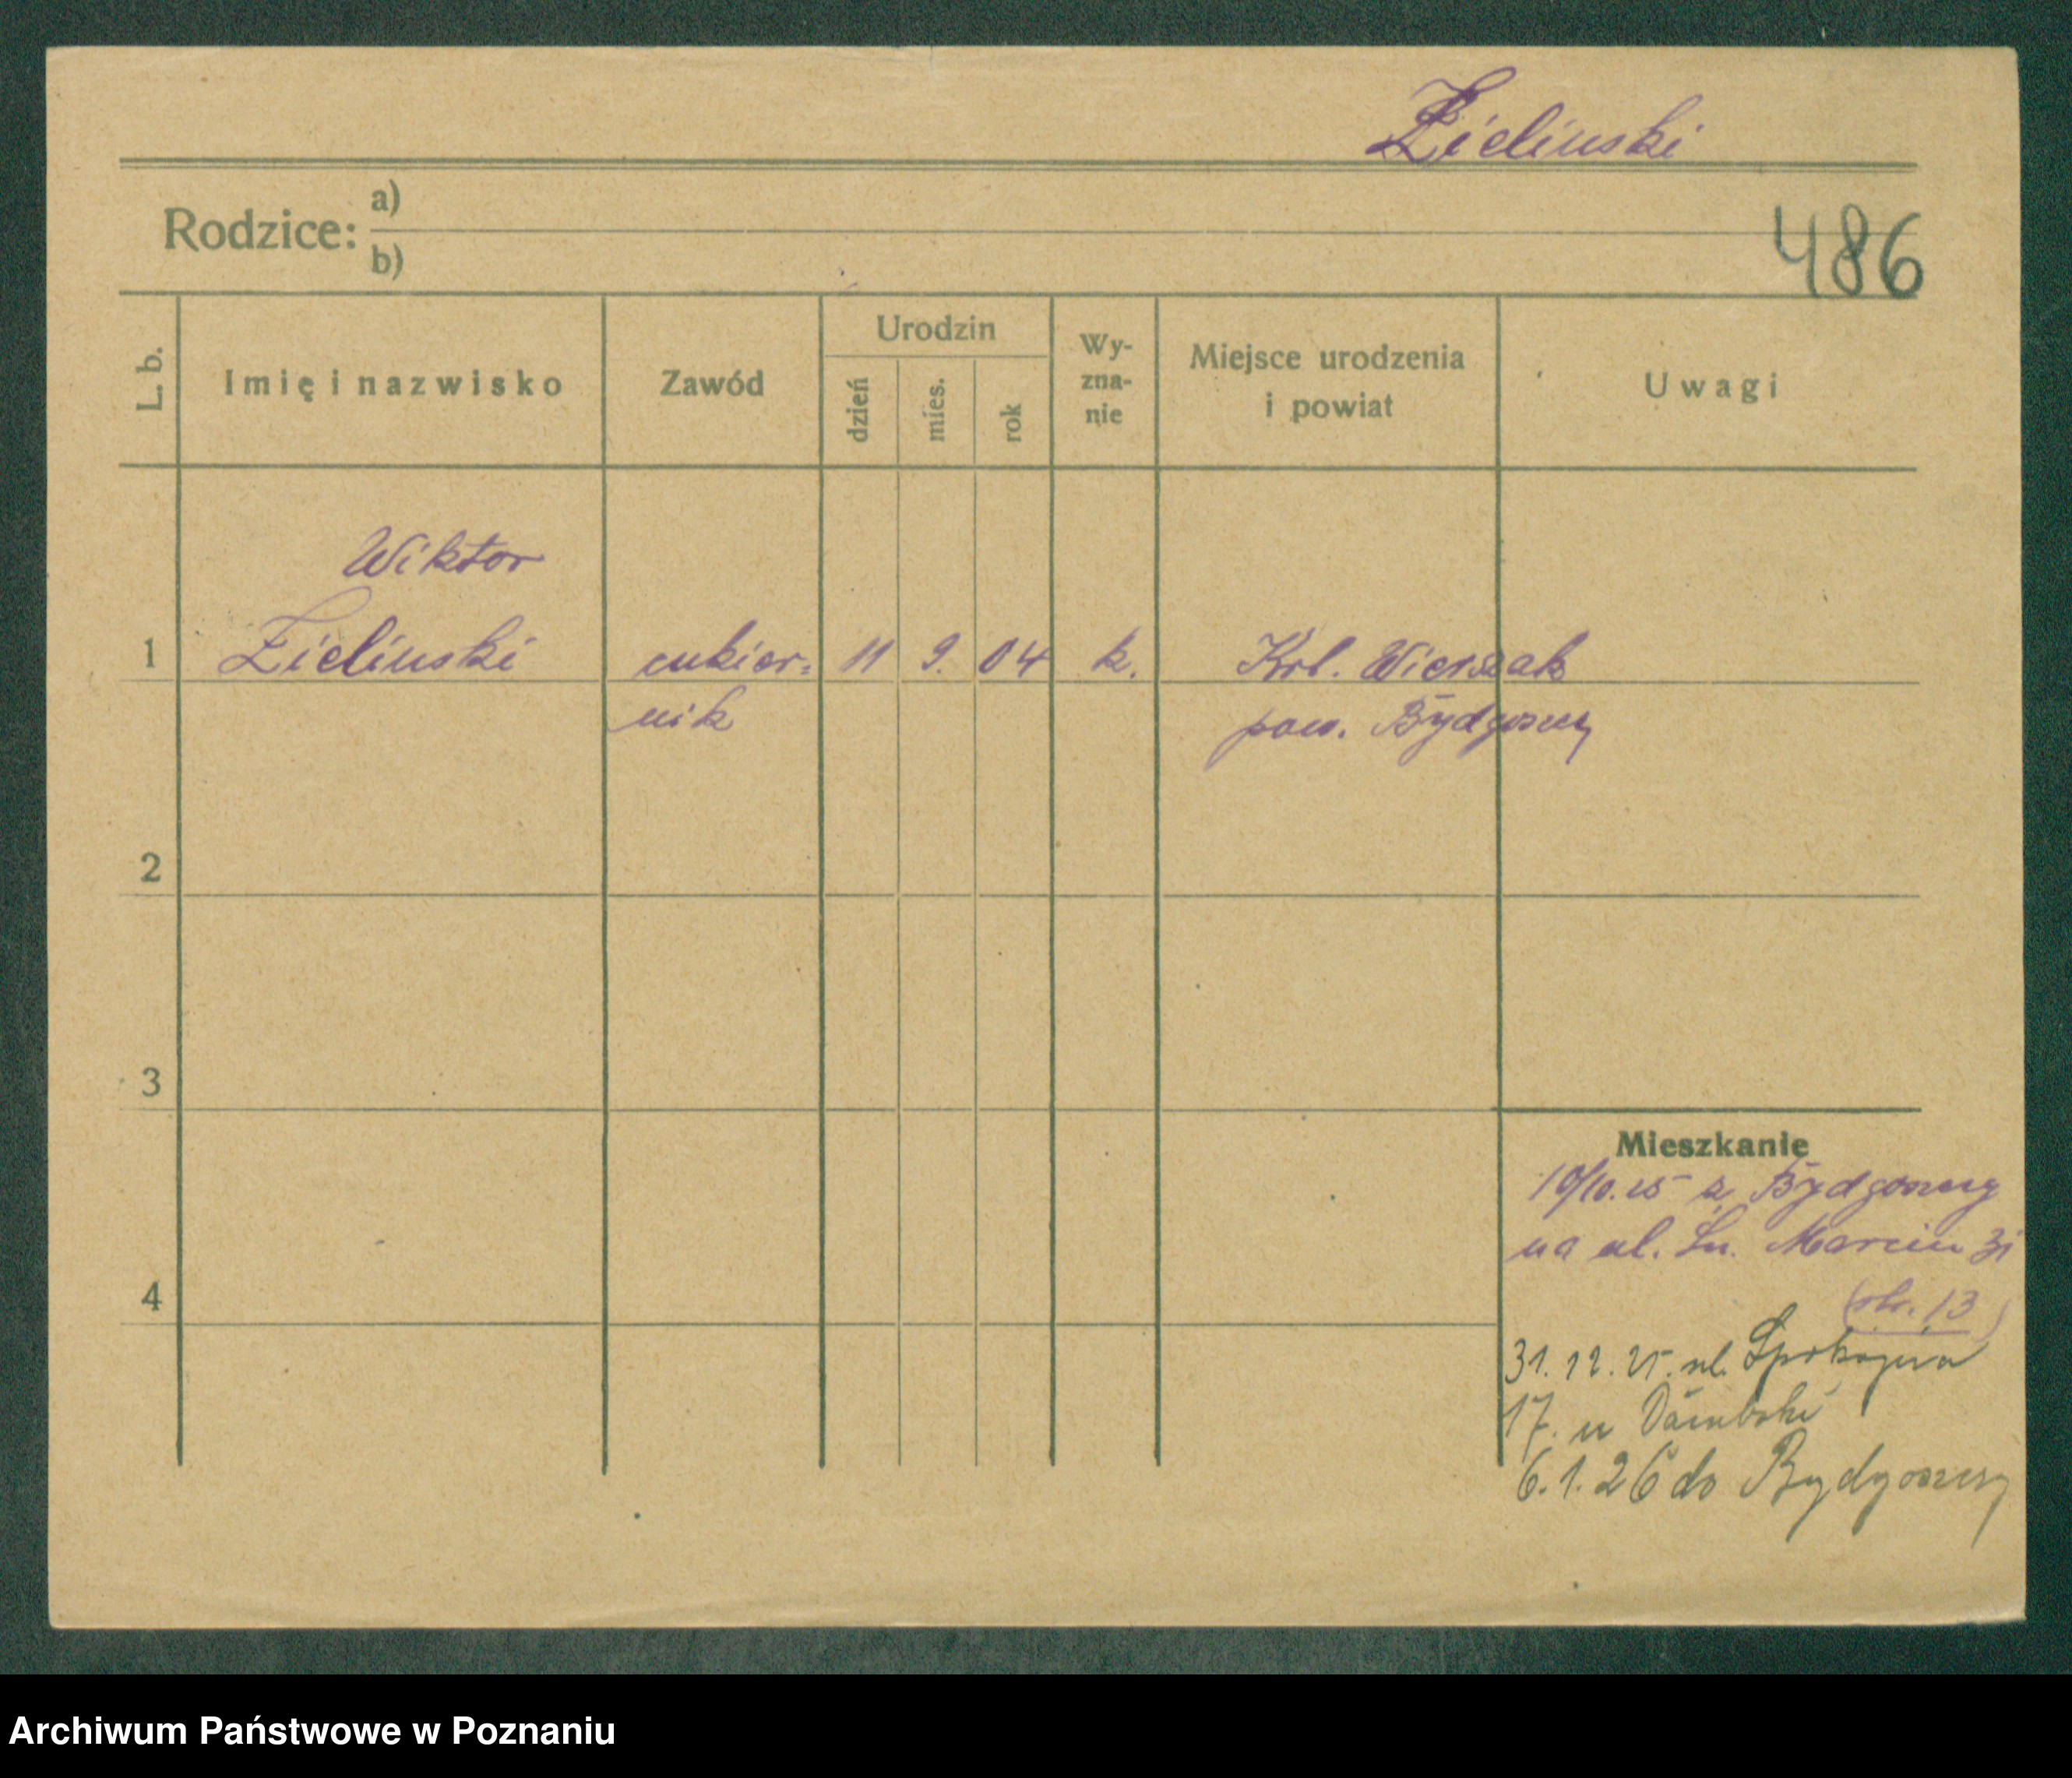 Zielinski
Rodzice:
a)
b)
486
L. b.
Imię i nazwisko
Zawód
Urodzin
dzień
mies.
rok
Wy-
zna-
nie
Miejsce urodzenia
i powiat
Uwagi
Wiktor
1 Zielinski cukier= 11 9. 04 k. Krl. Wierszak
nik pow. Bydgoszcz
2
3
4
Mieszkanie
10/10.25 z Bydgoszczy
na ul. Św. Marcin 31
13
31.12.25. ul. Spokojna
17. u
6.1.26 do Bydgoszczy
Archiwum Państwowe w Poznaniu